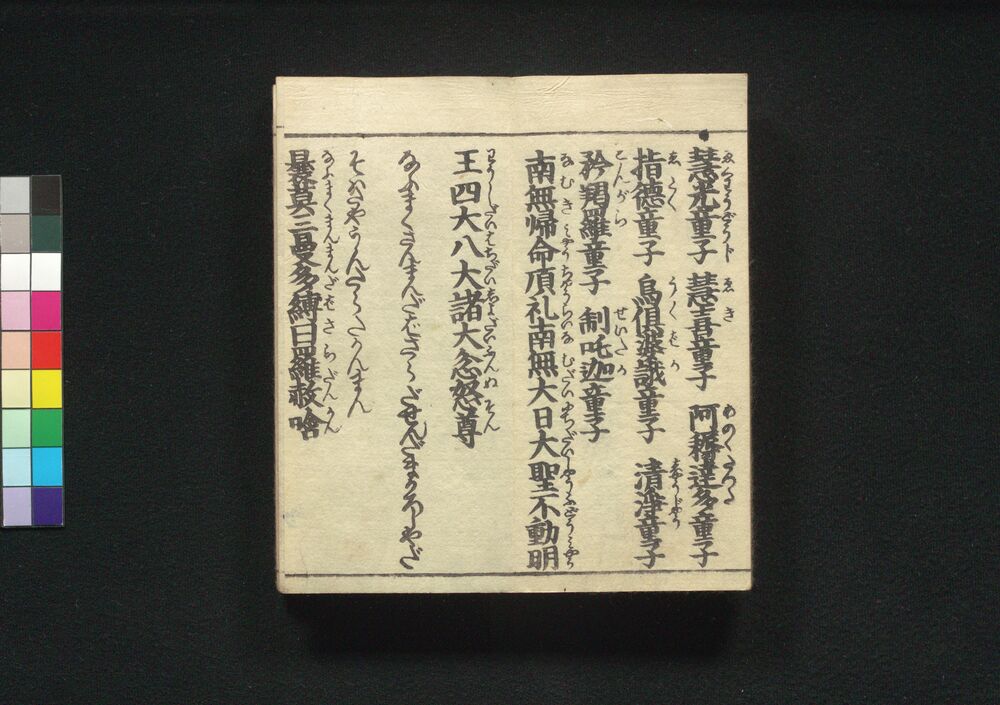 慧光童子 慧喜童子 阿耨達多童子
指徳童子 烏倶婆誐童子 清浄童子
矜羯羅童子 制吒迦童子
南無帰命頂礼南無大日大聖不動明
王四大八大諸大忿怒尊
なふまくさんまんだばさらだせんだまかろしやだ
そはたやうんたらたかんまん
曩莫三曼多縛曰羅赦唅